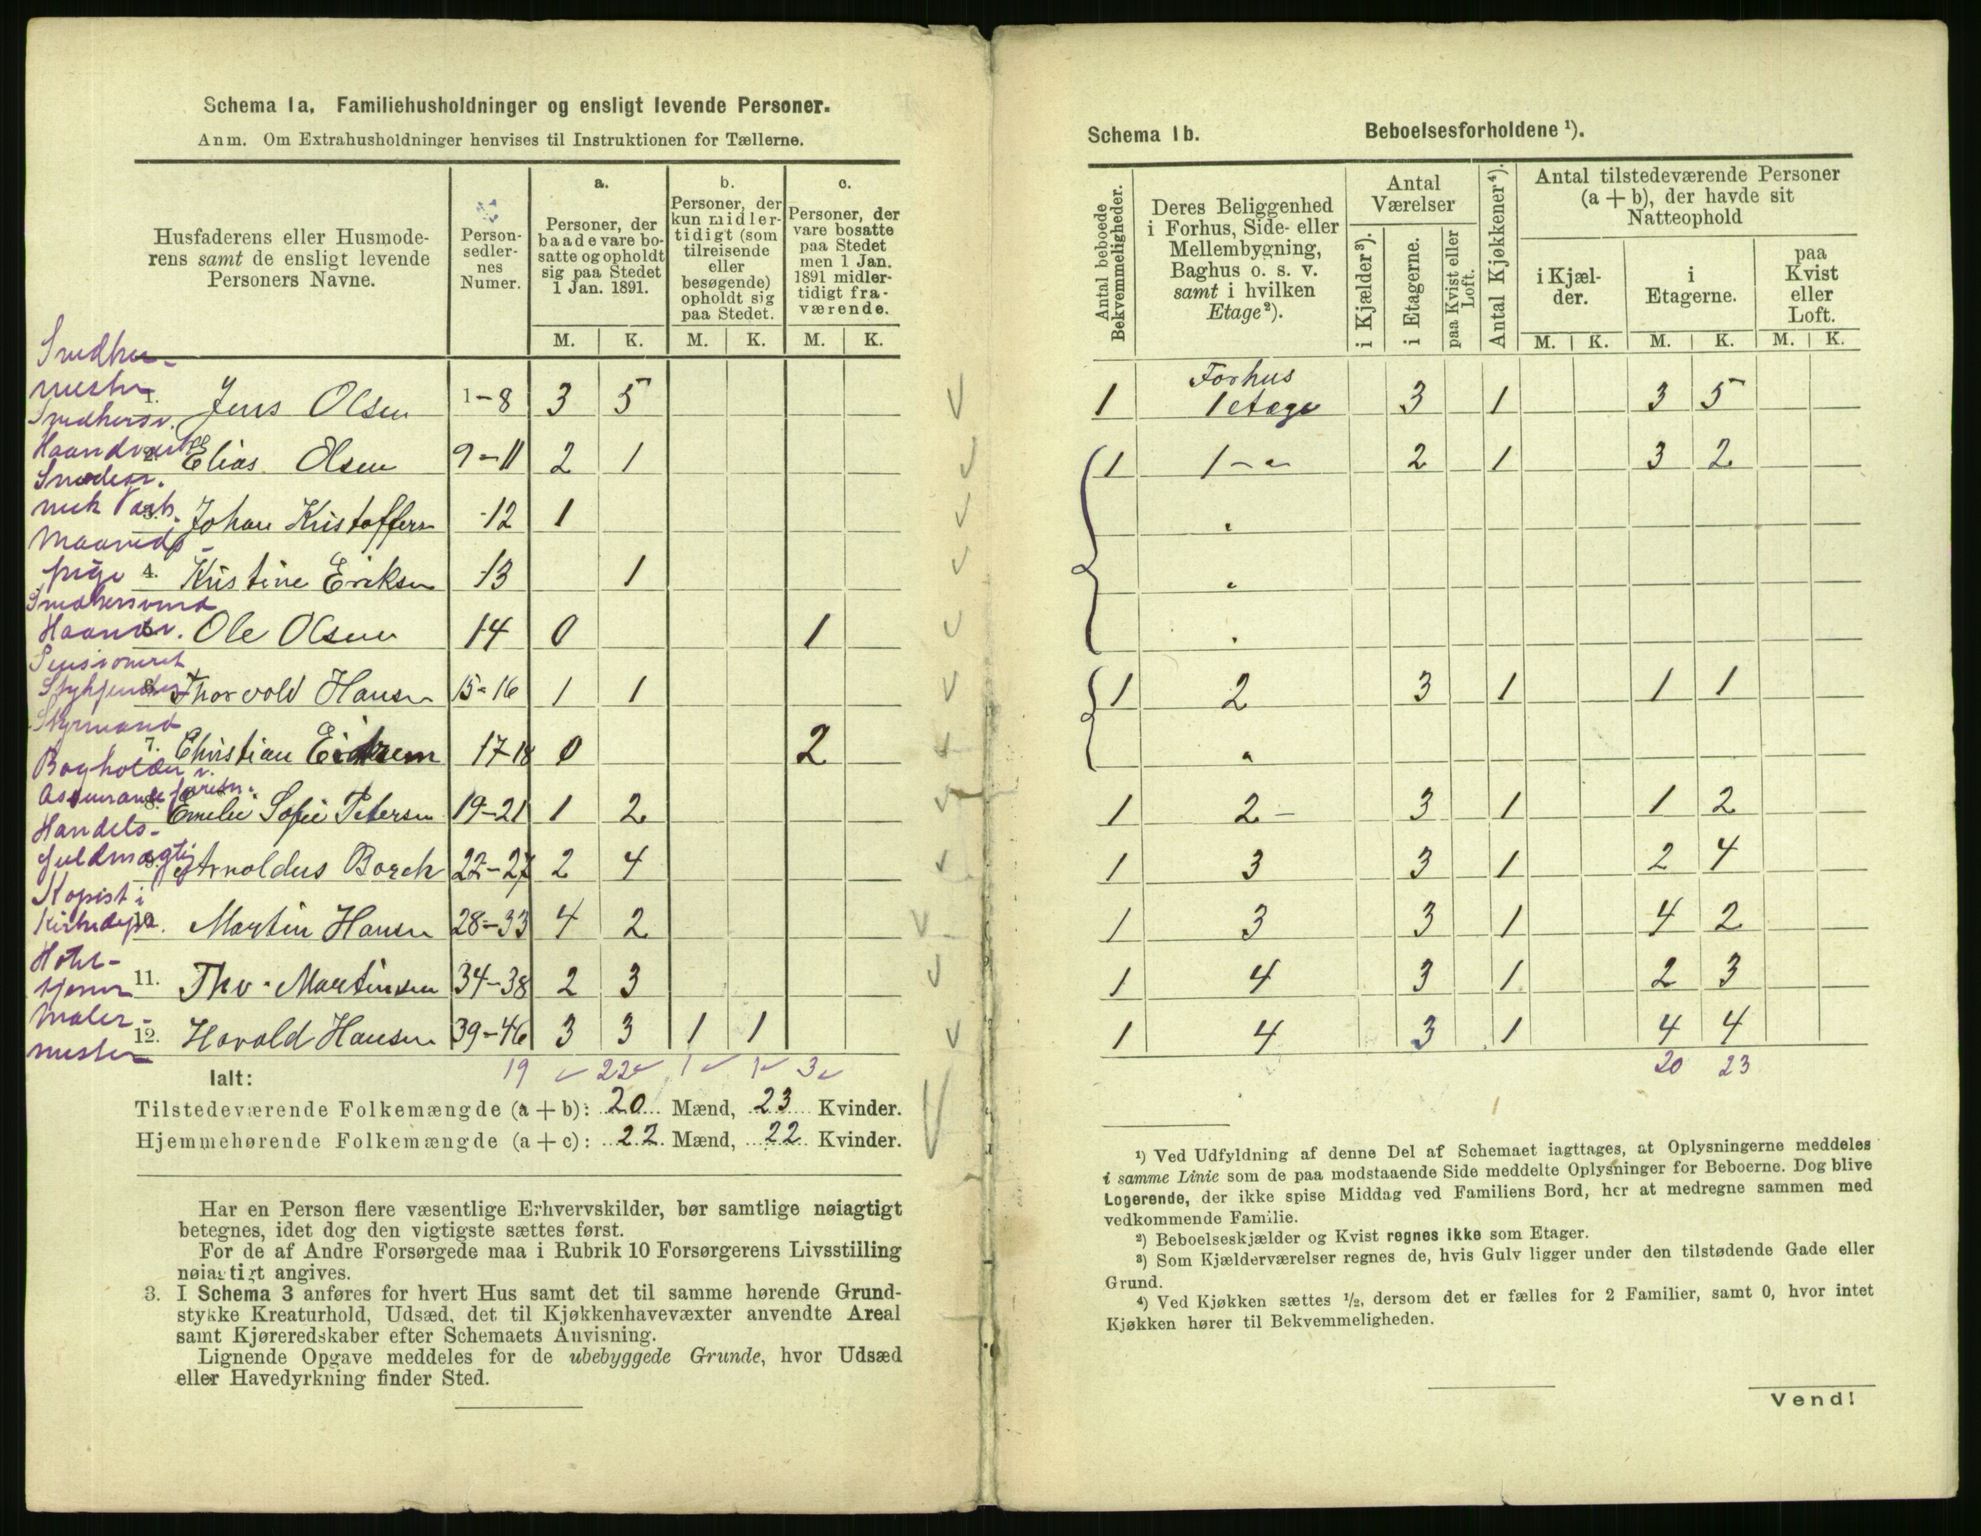 Schema 1a. Familiehusholdninger og ensligt levende Personer.
Anm. Om Extrahusholdninger henvises til Instruktionen for Tællerne.
Husfaderens eller Husmode-
rens samt de ensligt levende
Personers Navne.
Person-
sedler-
nes
Numer.
a.
Personer, der
baade vare bo-
satte og opholdt
sig paa Stedet
1 Jan. 1891.
b.
Personer, der
kun midler-
tidigt (som
tilreisende
eller
besøgende)
opholdt sig
paa Stedet.
c.
Personer, der
vare bosatte
paa Stedet
men 1 Jan.
1891 midler-
tidigt fra-
værende.
M. K. M. K. M. K.
1. Jens Olsen 1-8 3 5
2. Elias Olsen 9-11 2 1
3. Johan Kristoffersn 12 1
4. Kristine Eriksen 13 1
5. Ole Olsen 14 0 1
6. Thorvald Hansen 15-16 1 1
7. Christian 17-18 0 2
8. Emelie Sofie Petersen 19-21 1 2
9. Arnoldus Borch 22-27 2 4
10. Martin Hansen 28-33 4 2
11. Thv. Martinsen 34-38 2 3
12. Harald Hansen 39-46 3 3 1 1
Styrmand
Bogholder i
Handels-
fuldmægtig
Kopist i
Maler-
mester
19 22 1 1 3
Ialt:
Tilstedeværende Folkemængde (a + b): 20 Mænd, 23 Kvinder.
Hjemmehørende Folkemængde (a + c): 22 Mænd, 22 Kvinder.
Har en Person flere væsentlige Erhvervskilder, bør samtlige nøiagtigt
betegnes, idet dog den vigtigste sættes først.
For de af Andre Forsørgede maa i Rubrik 10 Forsørgerens Livsstilling
nøiagtigt angives.
3. I Schema 3 anføres for hvert Hus samt det til samme hørende Grund-
stykke Kreaturhold, Udsæd, det til Kjøkkenhavevæxter anvendte Areal
samt Kjøreredskaber efter Schemaets Anvisning.
Lignende Opgave meddeles for de ubebyggede Grunde, hvor Udsæd
eller Havedyrkning finder Sted.
Schema 1b. Beboelsesforholdene ¹).
Antal beboede
Bekvemmeligheder.
Deres Beliggenhed
i Forhus, Side- eller
Mellembygning,
Baghus o. s. v.
samt i hvilken
Etage²).
Antal
Værelser
i Kjælder³).
i Etagerne.
paa Kvist eller
Loft.
Antal Kjøkkener⁴).
Antal tilstedeværende Personer
(a + b), der havde sit
Natteophold
i Kjæl-
der.
i
Etagerne.
paa
Kvist
eller
Loft.
M. K. M. K. M. K.
1 Forhus
1 etage 3 1 3 5
1 1 - " - 2 1 3 2
"
"
"
1 2 3 1 1 1
"
1 2 - 3 1 1 2
1 3 3 1 2 4
1 3 3 1 4 2
1 4 3 1 2 3
1 4 3 1 4 4
20 23
¹) Ved Udfyldning af denne Del af Schemaet iagttages, at Oplysningerne meddeles
i samme Linie som de paa modstaaende Side meddelte Oplysninger for Beboerne. Dog blive
Logerende, der ikke spise Middag ved Familiens Bord, her at medregne sammen med
vedkommende Familie.
²) Beboelseskjælder og Kvist regnes ikke som Etager.
³) Som Kjælderværelser regnes de, hvis Gulv ligger under den tilstødende Gade eller
Grund.
⁴) Ved Kjøkken sættes ½, dersom det er fælles for 2 Familier, samt 0, hvor intet
Kjøkken hører til Bekvemmeligheden.
Vend!